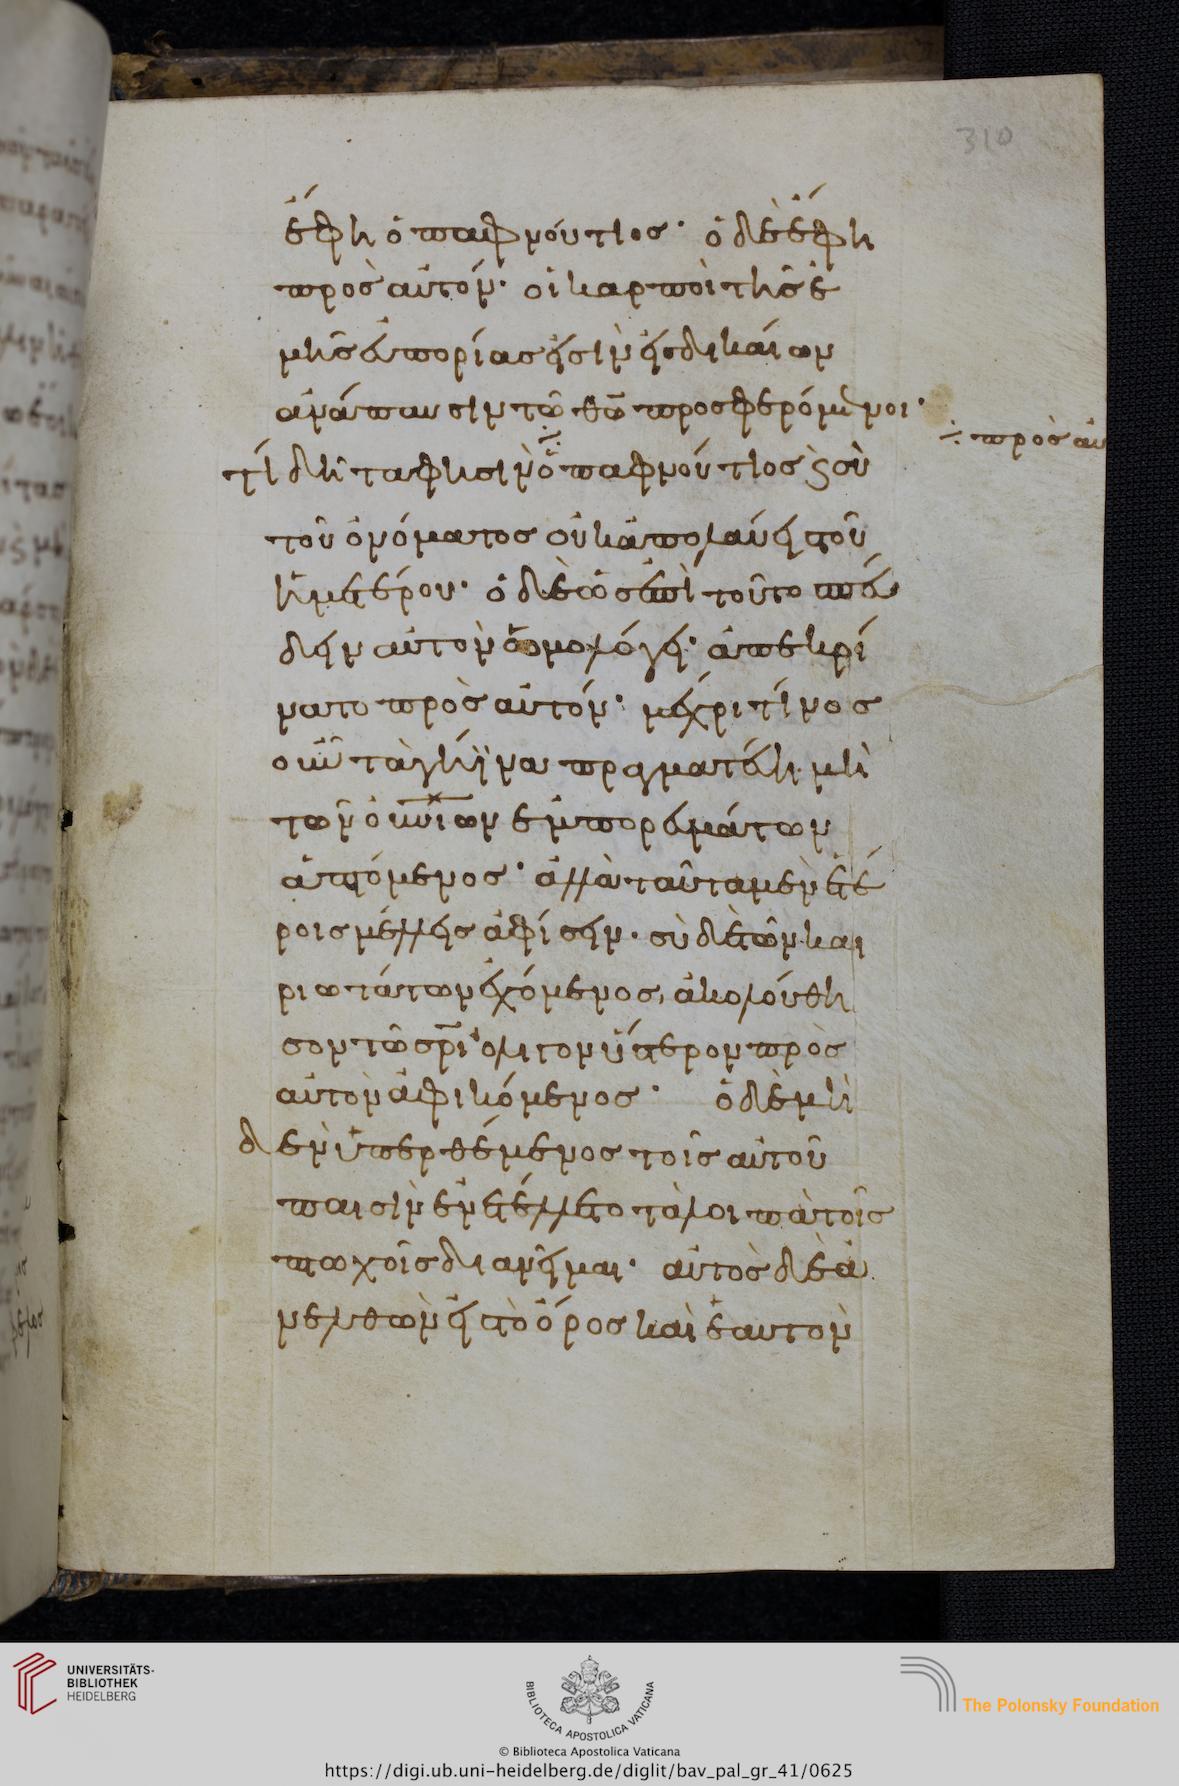 310
ἔφη ὁ παφνούτιος· ὁ δὲ ἔφη
πρὸς αὐτόν· οἱ καρποὶ τῆς ἐ
μῆς ἐμπορίας εἰσὶν εἰς δικαίων
ἀνάπαυσιν τῶ θῶ προσφερόμενοι·
÷ πρὸς αὐ
τί δῆτα φησὶν ὁ παφνούτιος ϛ σὺ
τοῦ ὀνόματος οὐκ ἀπολαύει τοῦ
ἡμετέρου· ὁ δὲ ὡς ἐπὶ τοῦτο σπεύ
δειν αὐτὸν ὁμολόγει· ἀπεκρί
νατο πρὸς αὐτόν· μέχρι τίνος
οὖν τὰ γήϊνα πραγματεύη· μὴ
τῶν οὐνίων ἐμπορευμάτων
ἁπτόμενος· ἀλλὰ ταῦτα μὲν ἑτέ
ροις μέλλεις ἀφίσειν· σὺ δὲ τῶν και
ριωτάτων ἐχόμενος, ἀκολούθη
σον τῶ σρι ὀλιτον ὕστερον πρὸς
αὐτὸν ἀφικόμενος· ὁ δὲ μὴ
δὲν ὑπερθέμενος τοῖς αὐτοῦ
παισὶν ἐνετέλλετο τὰ λοιπὰ τοῖς
πτωχοῖς διανεῖμαι· αὐτὸς δὲ ἀ
νελθὼν εἰς τὸ ὄρος καὶ ἑαυτὸν
UNIVERSITÄTS-
BIBLIOTHEK
HEIDELBERG
BIBLIOTECA APOSTOLICA VATICANA
© Biblioteca Apostolica Vaticana
The Polonsky Foundation
https://digi.ub.uni-heidelberg.de/diglit/bav_pal_gr_41/0625